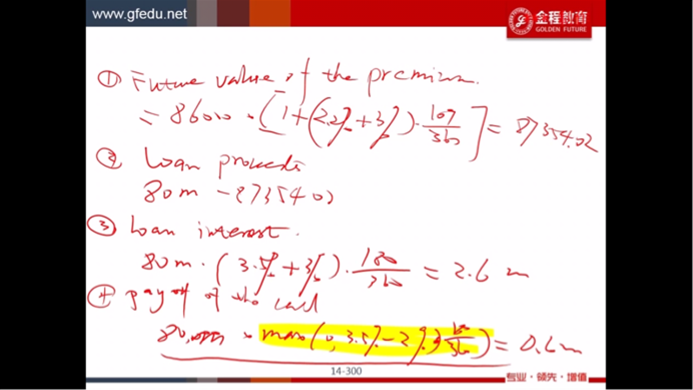 www.gfedu.net
金程教育
GOLDEN FUTURE
① Future value of the premium.
= 86000 · [1+(2.2%+3%)·109/360] = 87354.02
② Loan proceeds
80m - 87354.02
③ Loan interest.
80m · (3.5%+3%)·180/360 = 2.6 m
④ payoff of the call
max(0, 3.5%-2%) = 0.6m
14-300
专业·领先·增值